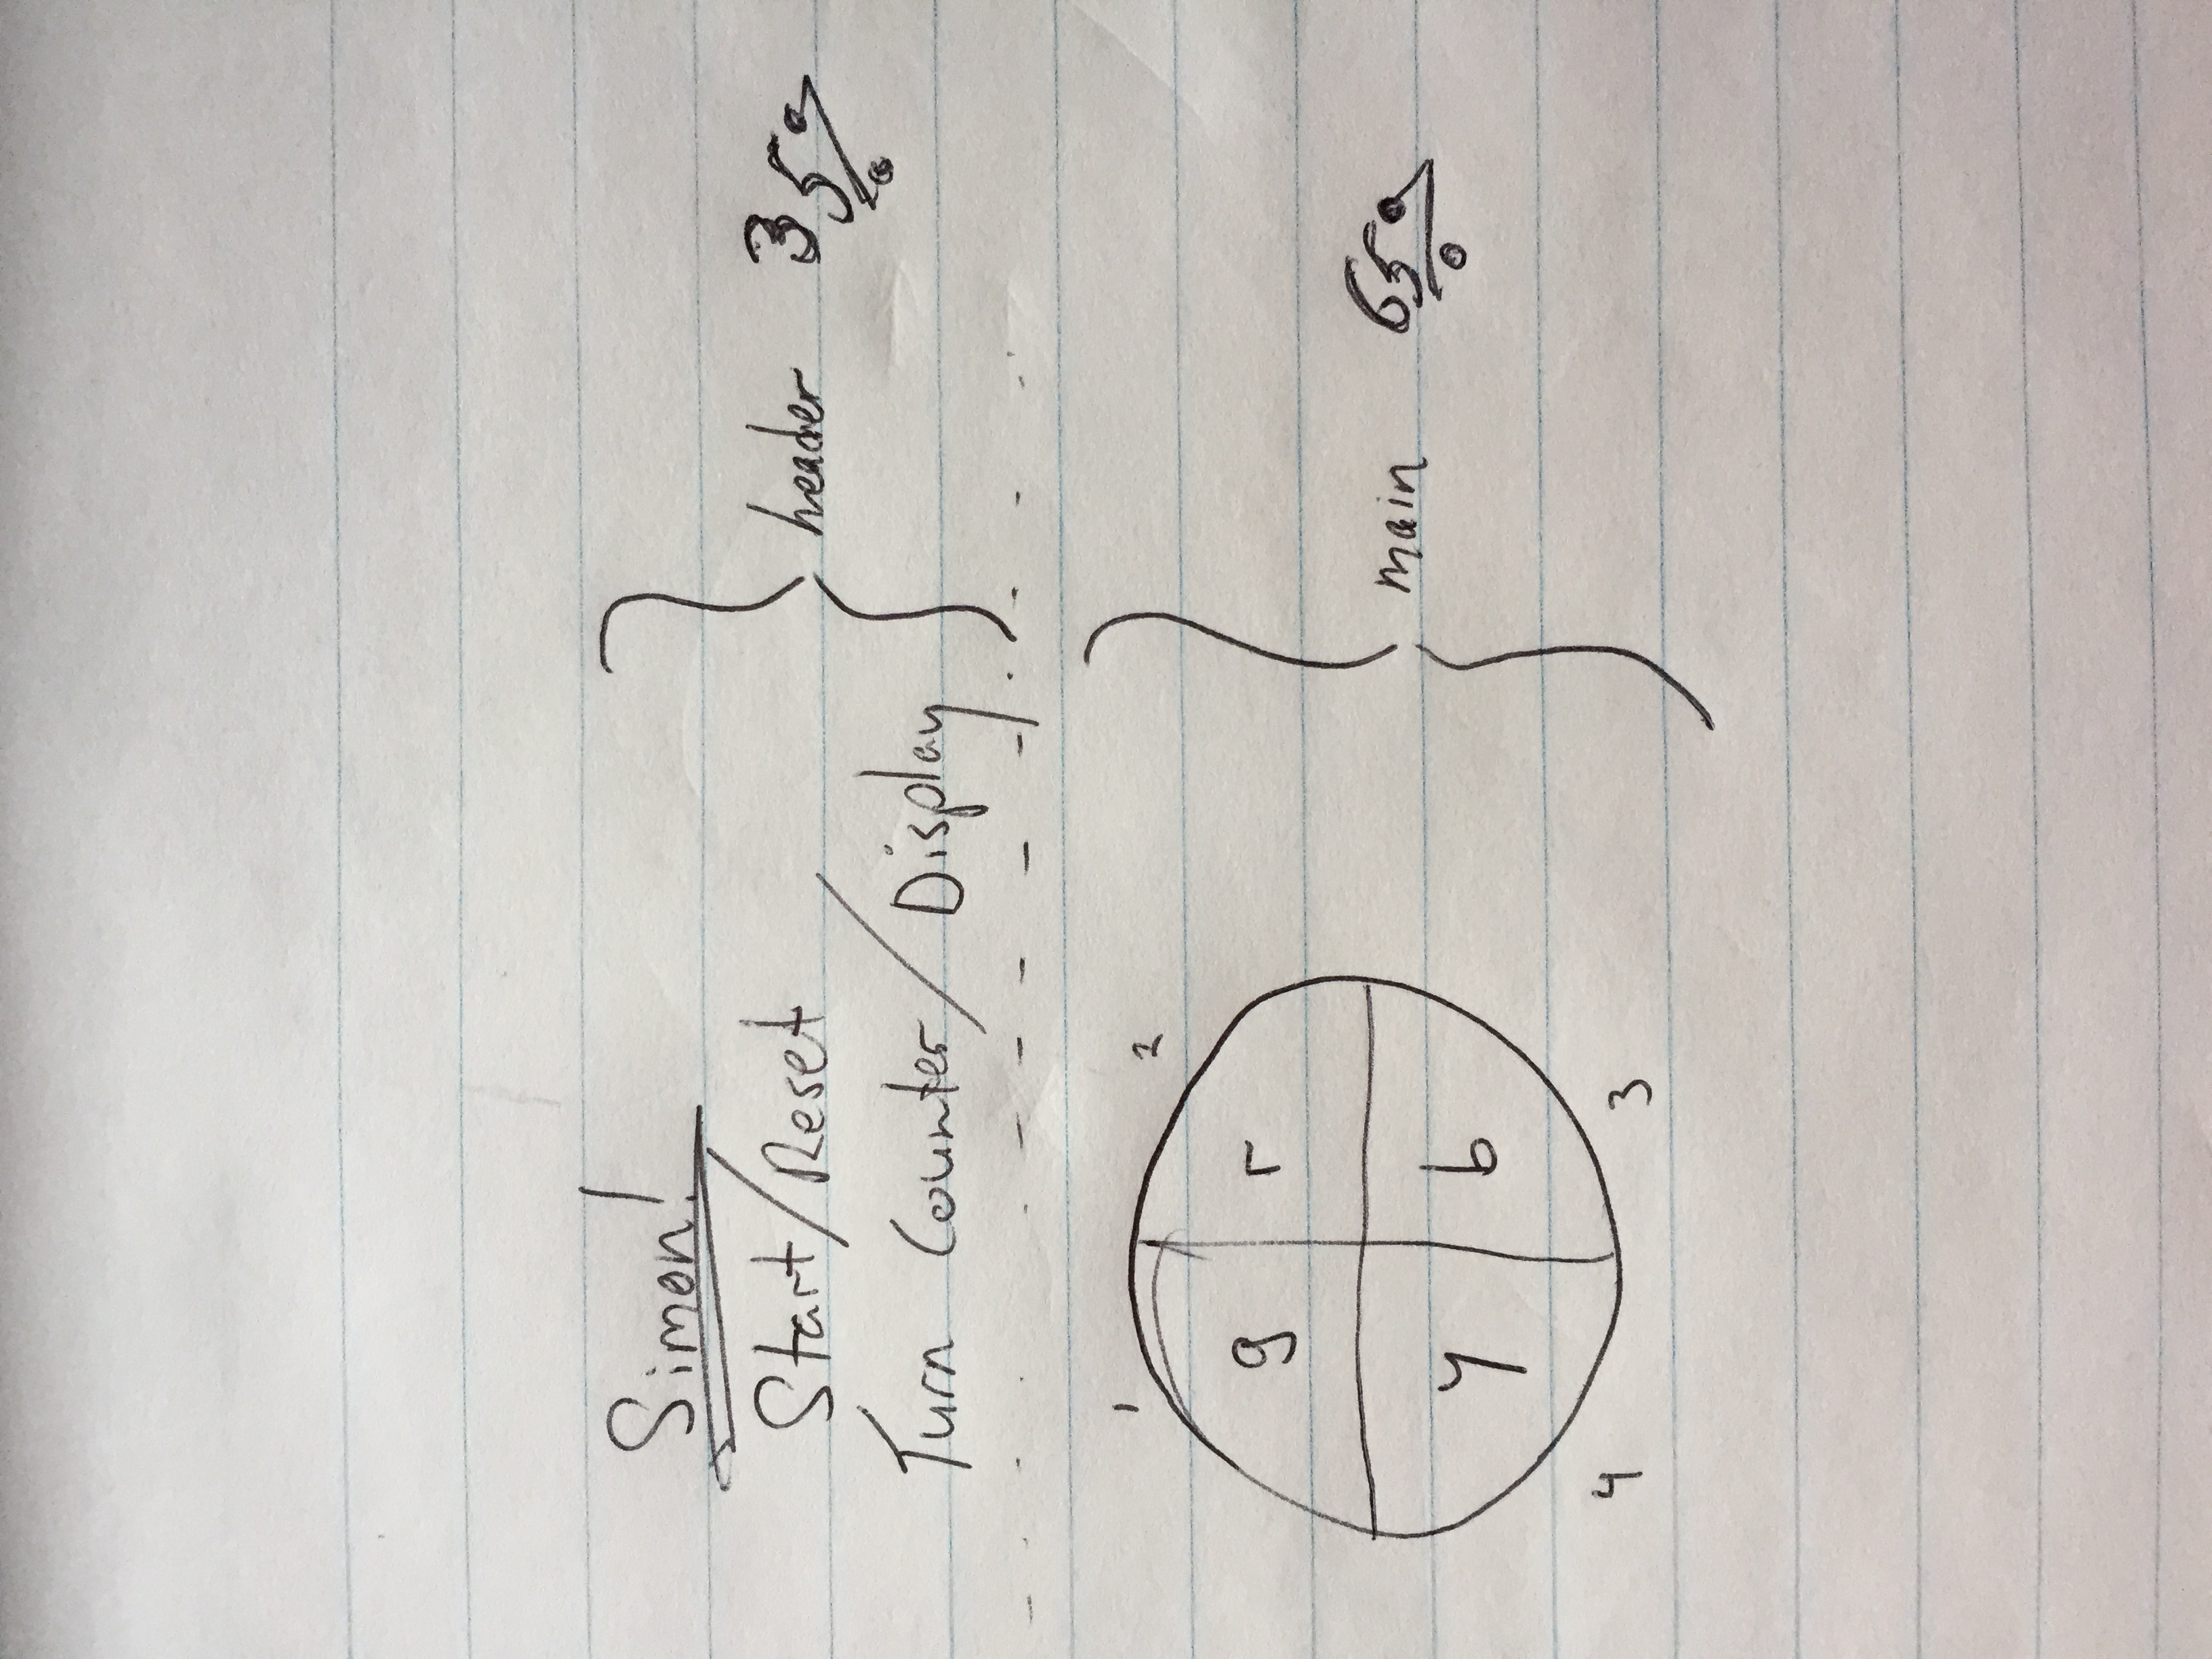 Simon!
Start/Reset
Turn Counter/Display
header 35%
1 2
g r
main 65%
y b
4 3